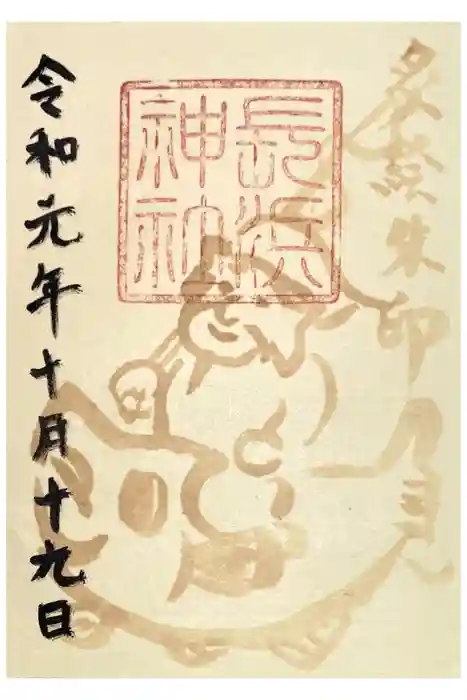 朱印
長浜
神社
令和元年十月十九日